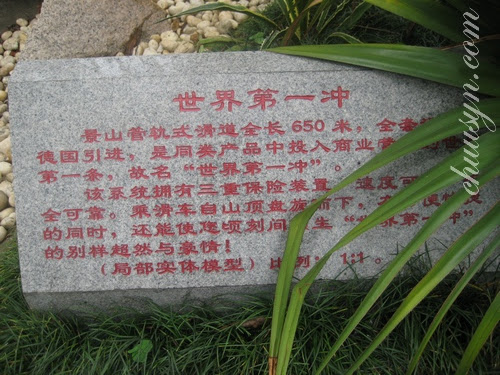 世界第一冲
景山管轨式滑道全长650米,全套
德国引进,是同类产品中投入商业营
第一条,故名“世界第一冲”。
该系统拥有三重保险装置,速度可
全可靠。乘滑车自山顶盘旋而下,在
的同时,还能使您顷刻间 生“世界第一冲”
的别样超然与豪情!
(局部实体模型)比例:1:1。
chuusyn.com